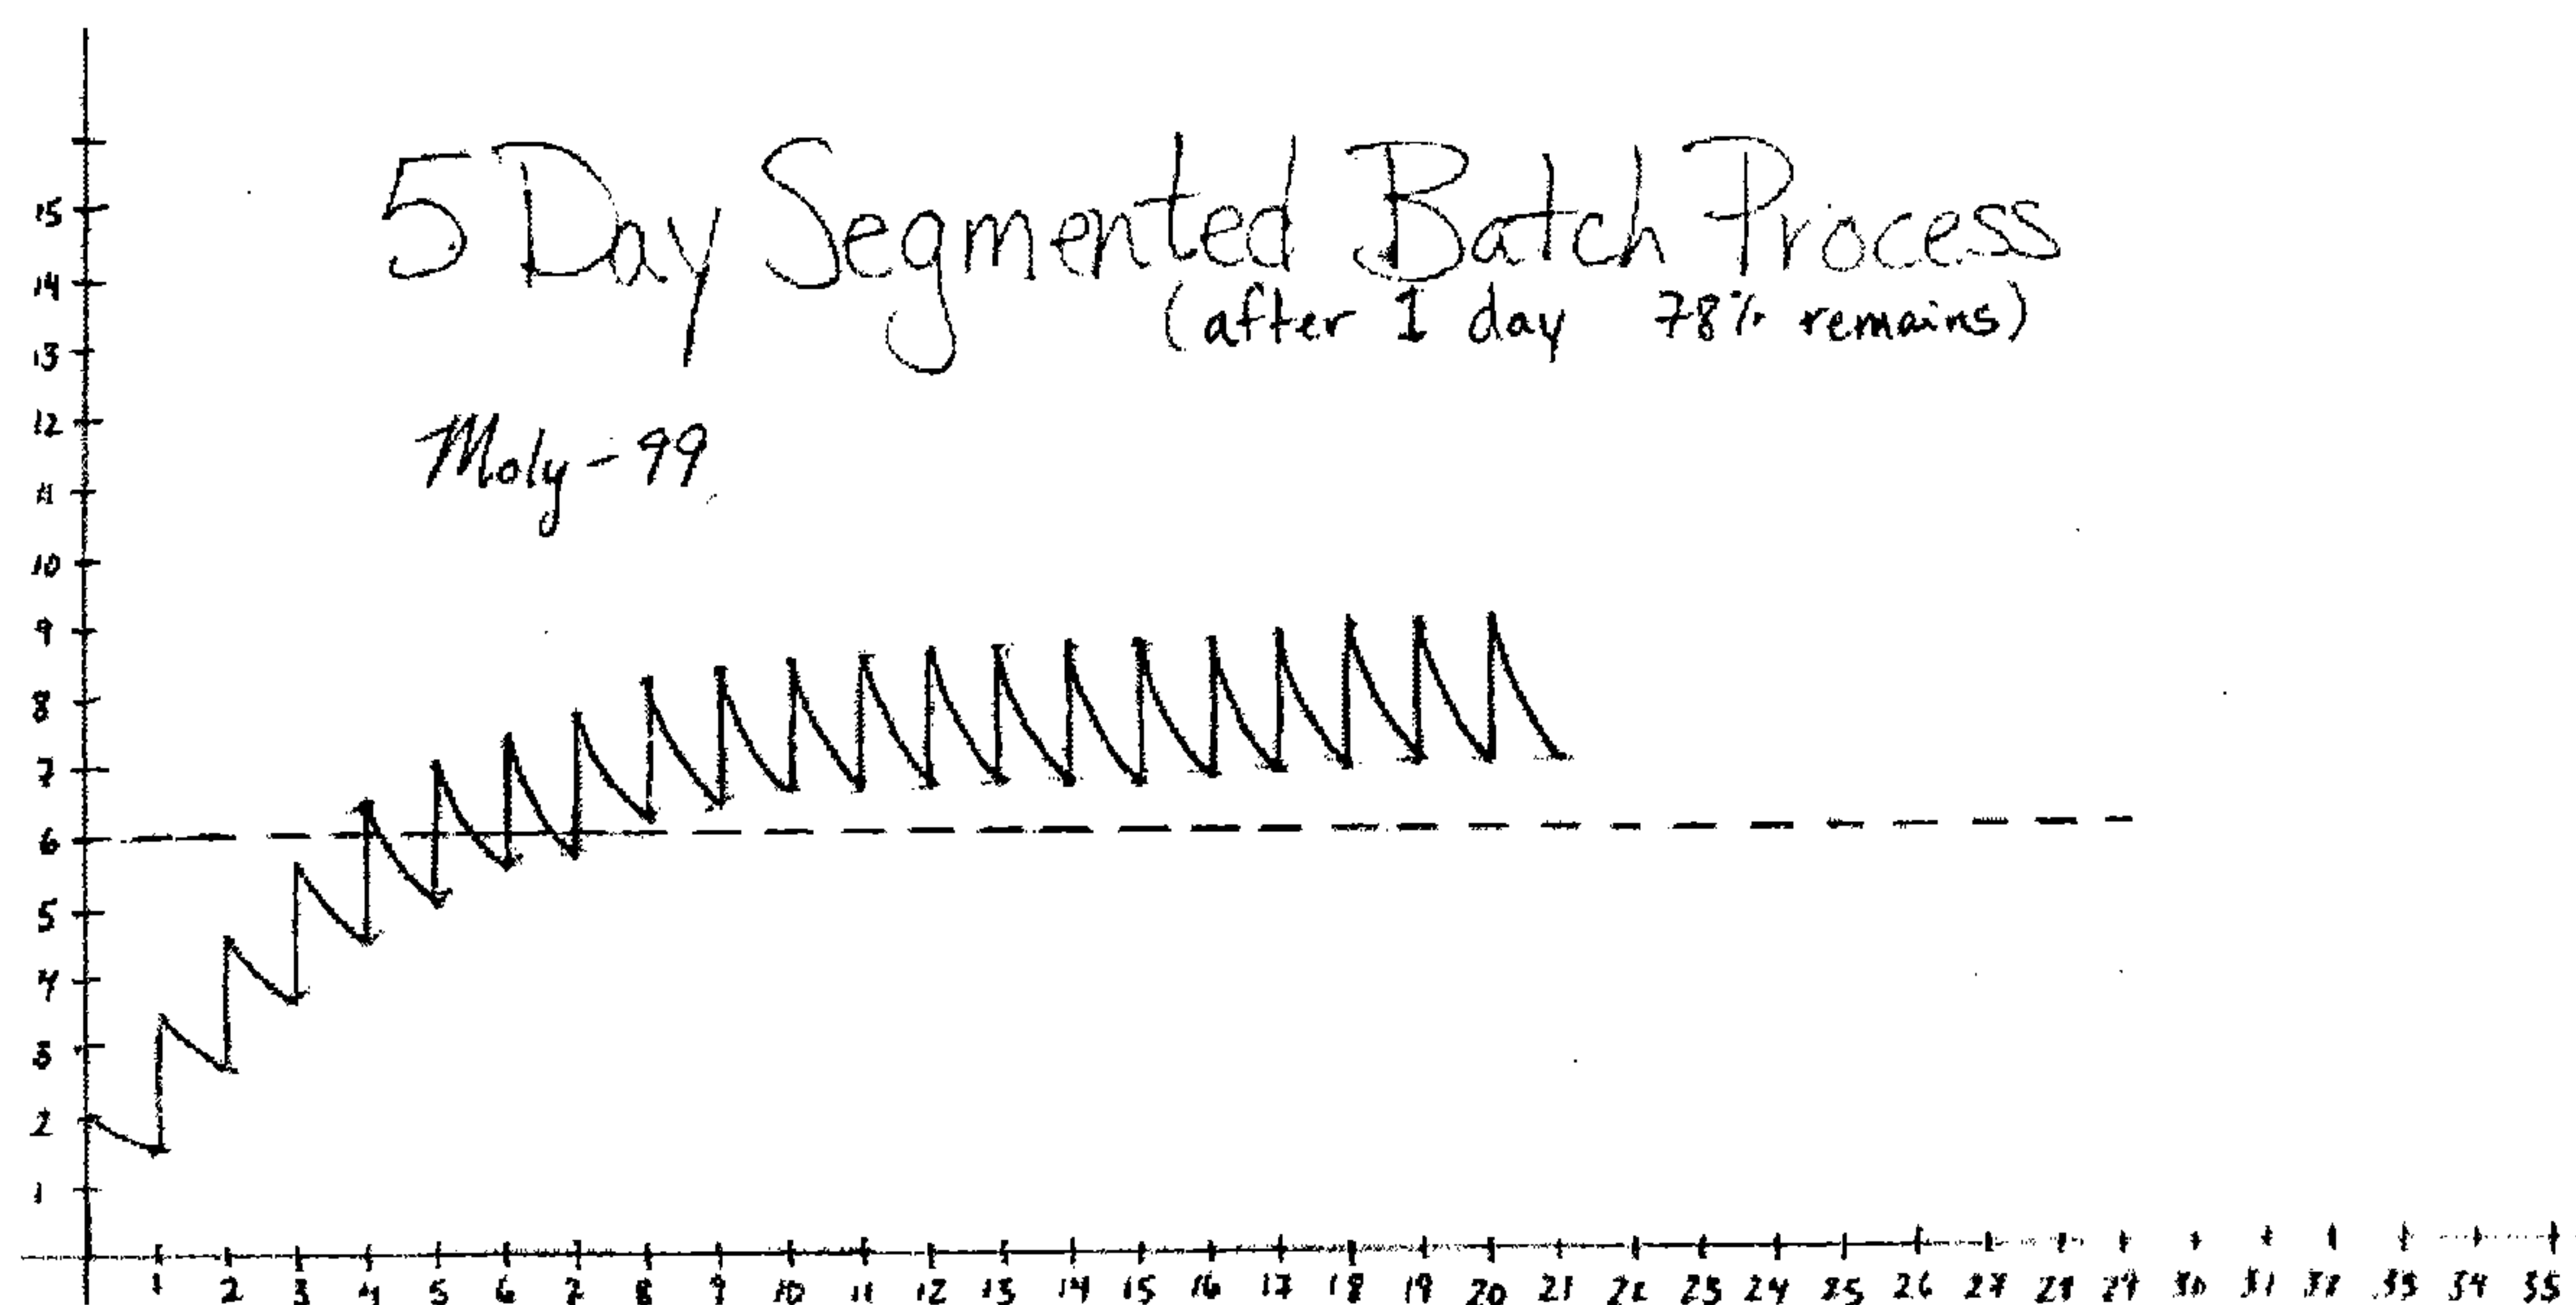 5 Day Segmented Batch Process
(after 1 day 78% remains)
Moly-99
15
14
13
12
11
10
9
8
7
6
5
4
3
2
1
1 2 3 4 5 6 7 8 9 10 11 12 13 14 15 16 17 18 19 20 21 22 23 24 25 26 27 28 29 30 31 32 33 34 35